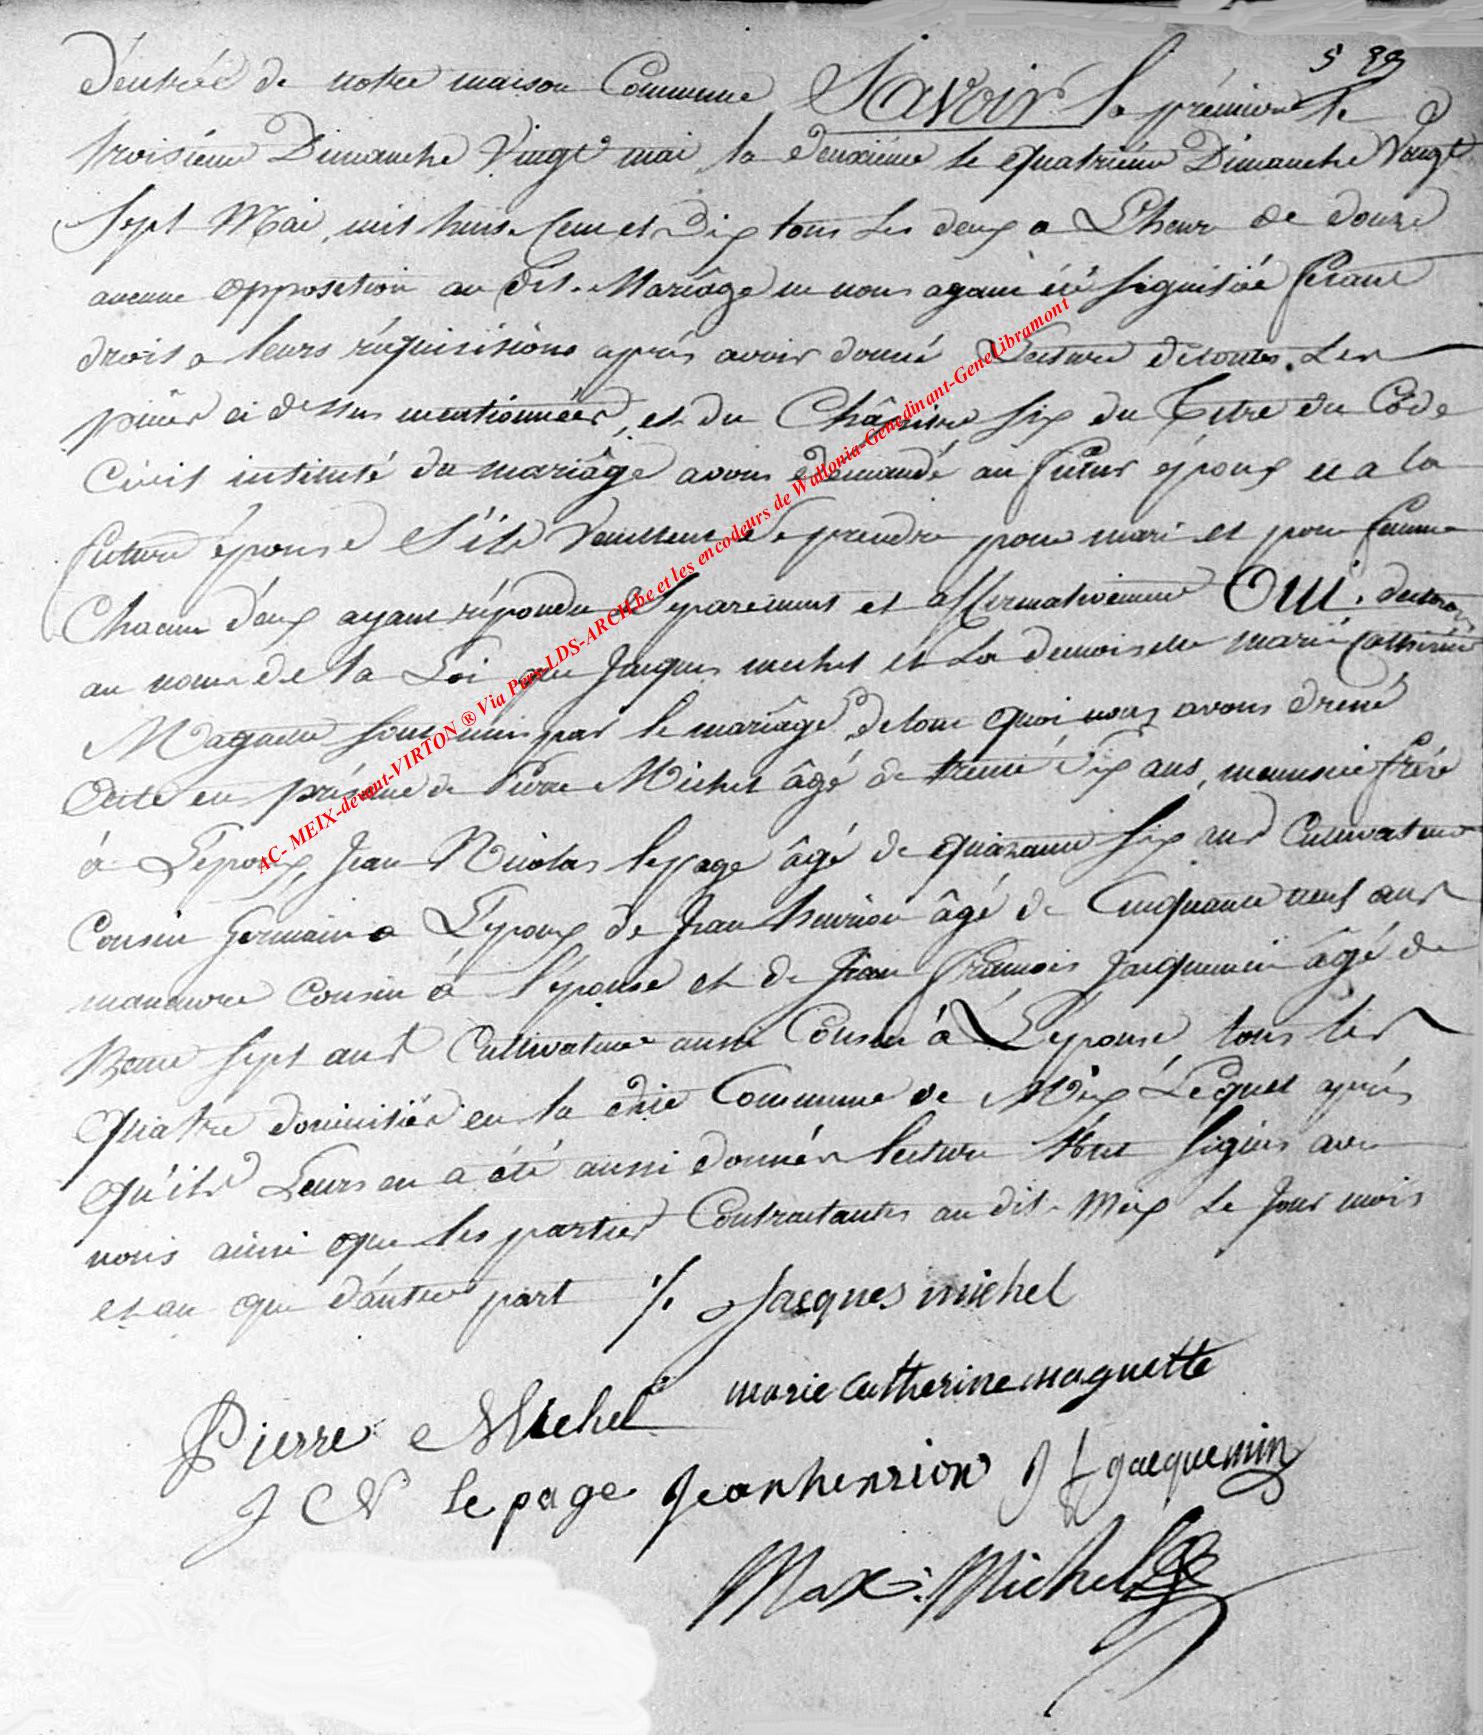 d'entrée de notre maison Commune Savoir la prémiere le
troisième Dimanche Vingt mai la deuxième le quatriéme Dimanche Vingt
Sept Mai, mil huit Cent et Dix tous les deux a L'heure de douze
aucune opposition au dit Mariâge ne nous ayant été signifiée fesant
droit a leurs réquisitions aprés avoir donné Lecture de toutes Les
piéces ci dessus mentionnées, et du Châpitre six du Titre du Côde
Civil intitulé du mariâge avons demandé au futur époux et a la
future épouse S'ils Veuillent se prendre pour mari et pour femme
Chacun d'eux ayant répondu Séparément et affirmativement Oui.
au nom de la Loi que Jacques michel et La demoiselle marie Catherine
Maguette sont unis par le mariâge de tout quoi nous avons dressé
Acte en présence de Pierre Michel âgé de trente Six ans frére
à L'époux, Jean Nicolas lepage âgé de quarante six ans Cultivateur
Cousin Germain a L'époux de Jean henrion âgé de Cinquante neuf ans
manœuvre Cousin à l'épouse et de Jean François Jacquemin âgé de
trente sept ans Cultivateur aussi Cousin à L'épouse tous les
Quatre domiciliés en la dite Commune de Meix Lequel aprés
qu'ils Leurs en a été aussi donnés lecture signés avec
nous ainsi que les parties Contractantes au dit Meix le Jour mois
et an que d'autre part %. Jacques michel
marie catherine maguette
Pierre Michel
J N le page Jean henrion J f jacquemin
Max: Michel
AC- MEIX-devant-VIRTON ® Via Pers-LDS-ARCH.be et les encodeurs de Wallonia-Genedinant-GeneLibramont